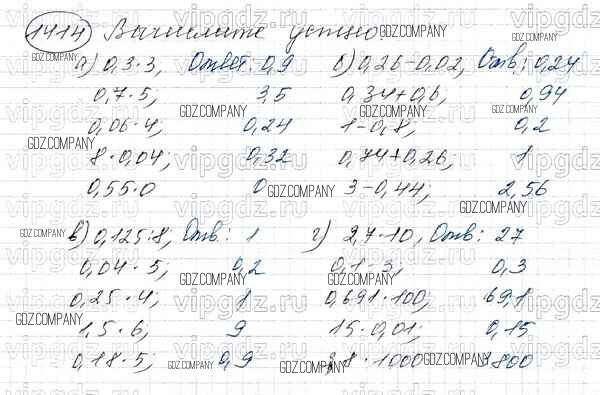 1414 Вычислите устно.
а) 0,3·3, Ответ: 0,9
0,7·5; 3,5
0,06·4; 0,24
8·0,04; 0,32
0,55·0 0
б) 0,26-0,02, Отв: 0,24
0,34+0,6, 0,94
1-0,8; 0,2
0,74+0,26; 1
3-0,44; 2,56
в) 0,125·8; Отв: 1
0,04·5; 0,2
0,25·4; 1
1,5·6; 9
0,18·5; 0,9
г) 2,7·10, Отв: 27
0,1·3; 0,3
0,691·100; 69,1
15·0,01; 0,15
3,8·1000 3800
GDZ.COMPANY
vipgdz.ru